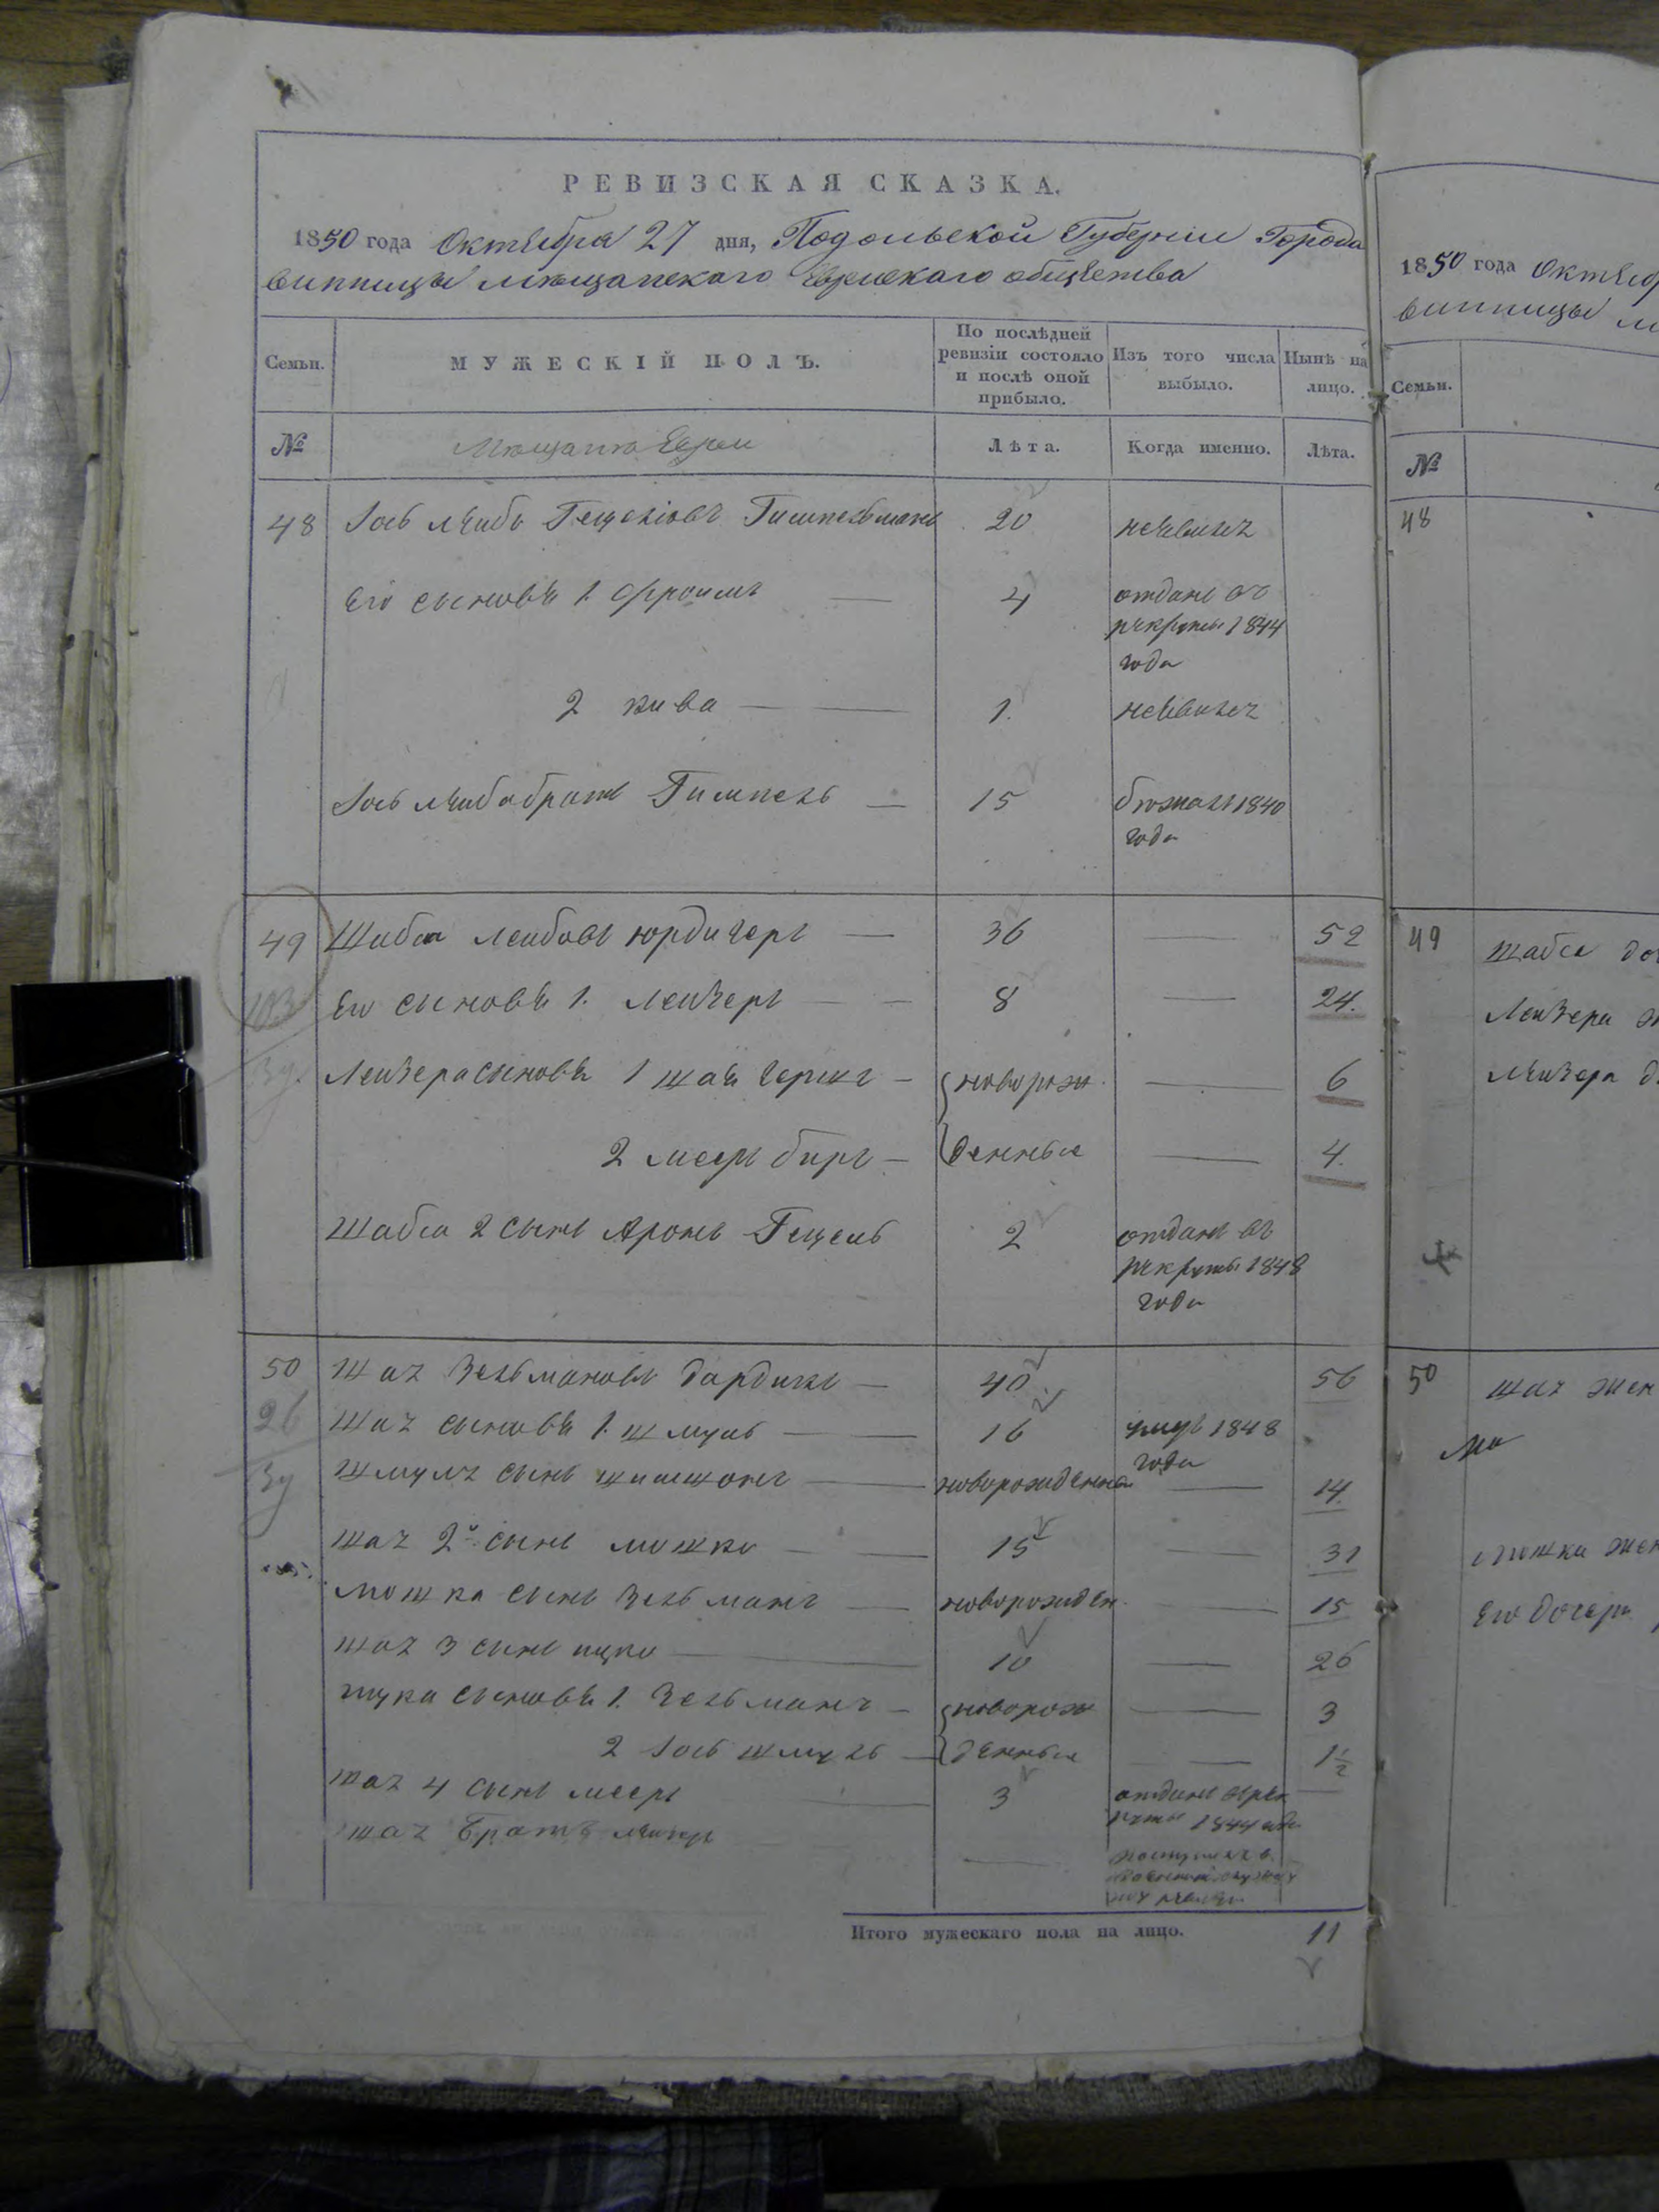 РЕВИЗСКАЯ СКАЗКА.
1850 года Октября 27 дня, Подольской Губернии Города
Винницы мѣщанскаго Еврейскаго общества
Семьи.
МУЖЕСКІЙ ПОЛЪ.
По послѣдней ревизіи состояло и послѣ оной прибыло.
Изъ того числа выбыло.
Нынѣ на лицо.
№
Мѣщане Евреи
Лѣта.
Когда именно.
Лѣта.
48 Іось Лейбъ Гецеліовъ Гимпельманъ 20 неявилсъ
Его сыновья 1. Фроимъ — 4 отданъ въ рекруты 1844 года
2 Кива — 1. неявилсъ
Іось Лейба братъ Гимпель — 15 бѣжалъ 1840 года
49 Шабса Лейбовъ — 36 — 52
Его сыновья 1. Лейзеръ — 8 — 24.
Лейзера сыновья 1 — { новорож — 6
2 Меер Беръ — денные — 4.
Шабса 2 сынъ Аронъ Гецель 2 отданъ въ рекруты 1848 года
50 Шая Зельмановъ Дардикъ — 40 56
26 Шая сыновья 1. Шмуль — 16 умеръ 1848 года
Шмуля сынъ Шимшонъ — новорожденны — 14.
Шая 2й сынъ Мошко — 15 — 31
Мошка сынъ Зельманъ — новорожден — 15
Шая 3 сынъ Ицко — 10 — 26
Ицка сыновья 1. Зельманъ — { новорож — 3
2 Іось Шмуль — денные — 1½
Шая 4 сынъ Мееръ — 3 отданъ в рекруты 1844 года
Шая братъ Лейзеръ —
Итого мужескаго пола на лицо. 11
1850 года Октяб
Винницы м
Семьи.
№
48
49 Шабса до
Лейзера
Лейзера д
50 Шая жен
Мошка жен
Его дочерь